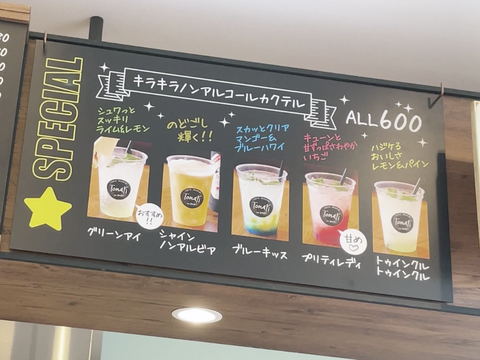 SPECIAL
キラキラノンアルコールカクテル
ALL600
シュワっと
スッキリ
ライム&レモン
のどごし
輝く!!
スカッとクリア
マンゴー&
ブルーハワイ
キューンと
甘ずっぱさわやか
いちご
ハジケる
おいしさ
レモン&パイン
Tomati
Tomati
Tomati
Tomati
Tomati
おすすめ
!!
甘め
グリーンアイ
シャイン
ノンアルビア
ブルーキッス
プリティレディ
トゥインクル
トゥインクル